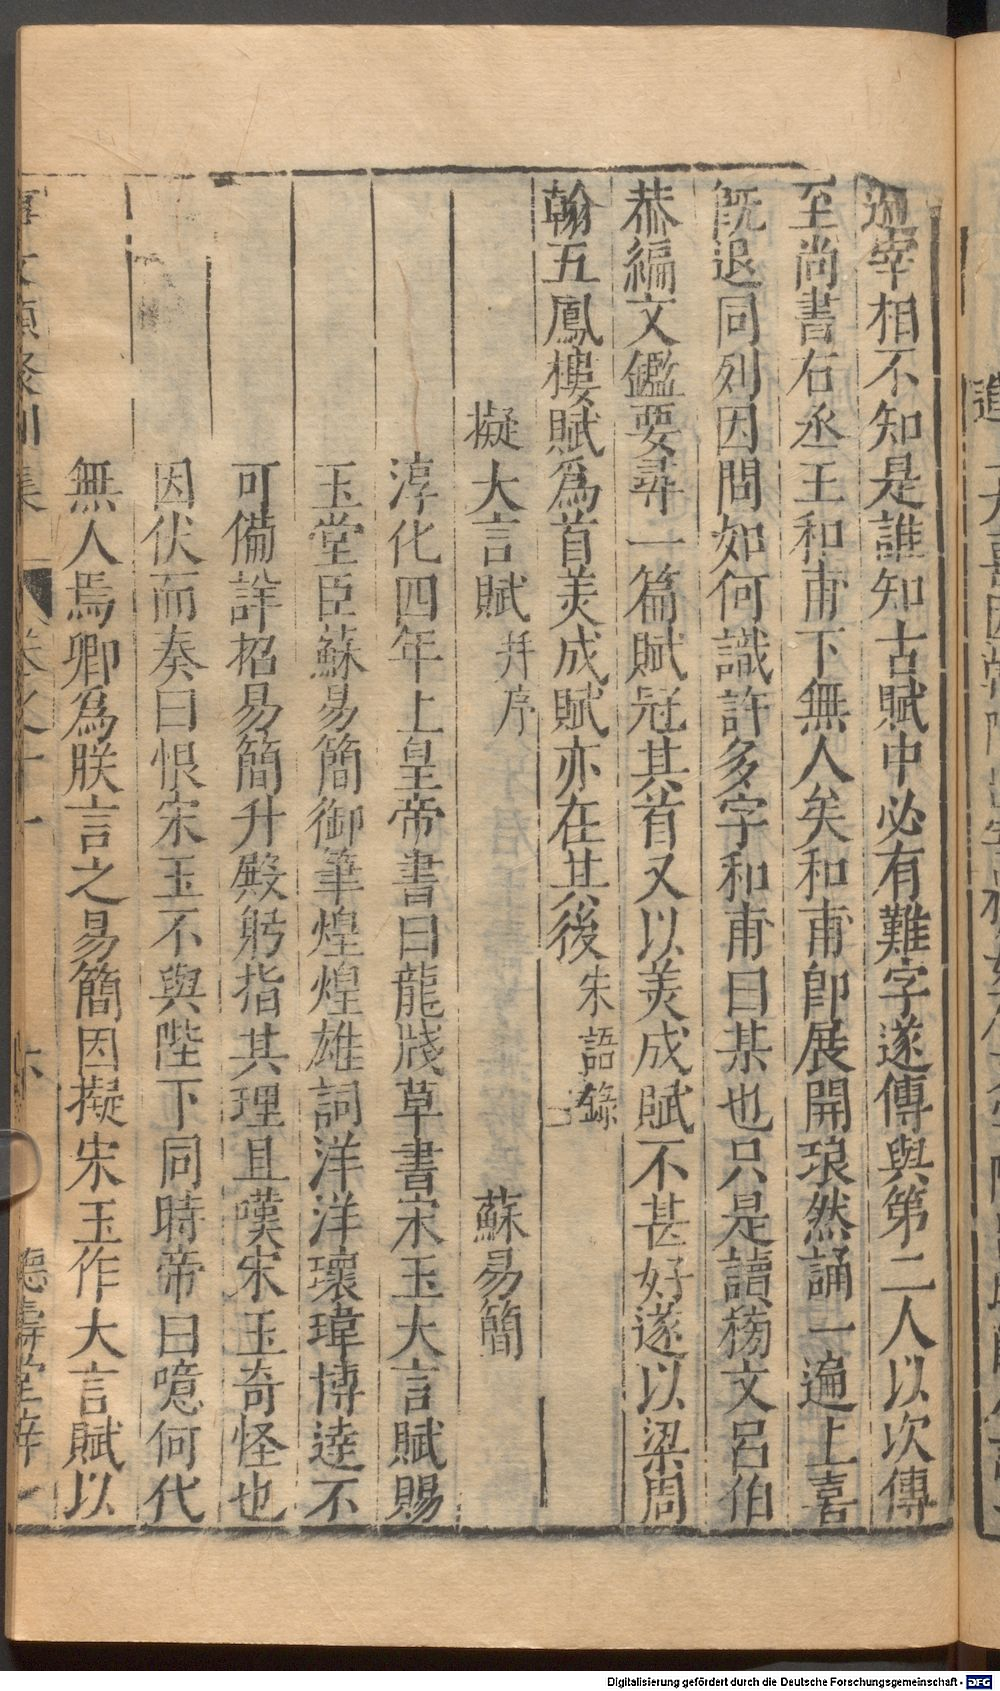 過宰相不知是誰知古賦中必有難字遂傳與第二人以次傳
至尚書右丞王和甫下無人矣和甫卽展開琅然誦一遍上喜
旣退同列因問如何識許多字和甫曰某也只是讀𫞩文呂伯
恭編文鑑要尋一篇賦冠其首又以美成賦不甚好遂以梁周
翰五鳳樓賦爲首美成賦亦在其後朱語錄
擬大言賦并序 蘇易簡
淳化四年上皇帝書曰龍牋草書宋玉大言賦賜
玉堂臣蘇易簡御筆煌煌雄詞洋洋瓌瑋博達不
可備詳招易簡升殿躬指其理且嘆宋玉奇怪也
因伏而奏曰恨宋玉不與陛下同時帝曰噫何代
無人焉卿為朕言之易簡因擬宋玉作大言賦以
事文類聚別集 卷之十一 六 德壽堂梓
Digitalisierung gefördert durch die Deutsche Forschungsgemeinschaft - DFG